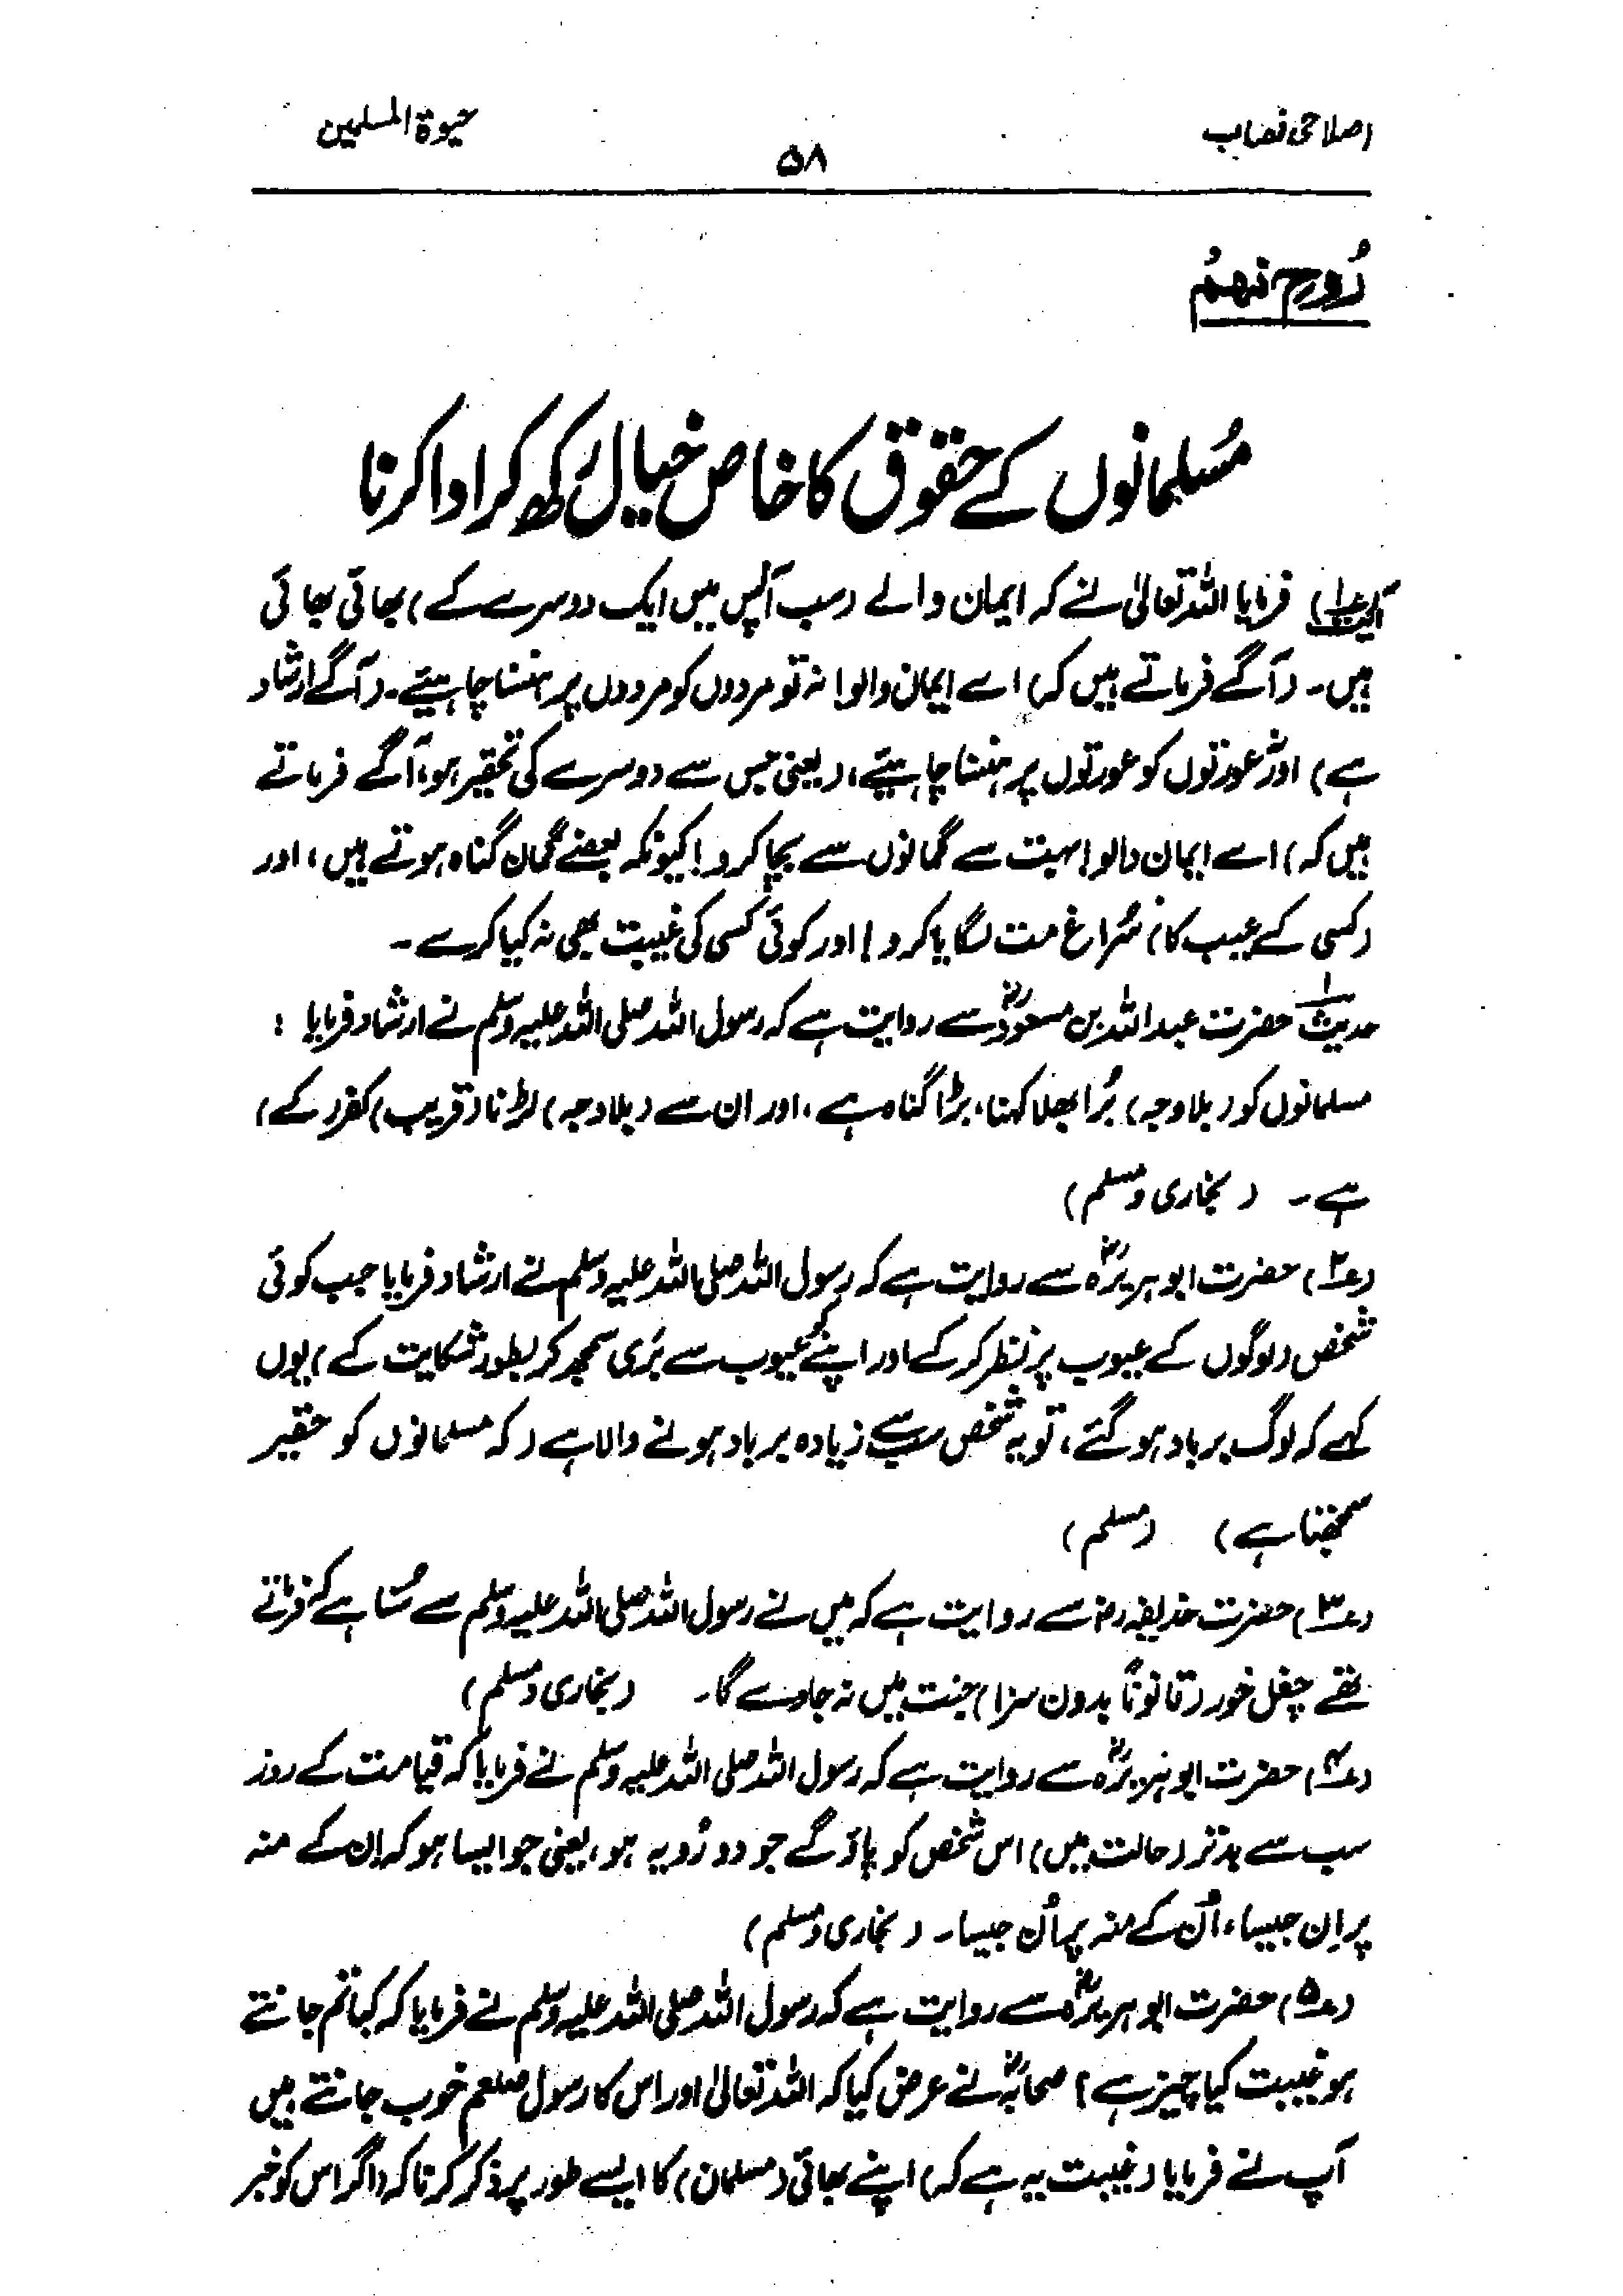 اصلاحی نصاب
۵۸
حیوۃ المسلمین
رُوحِ نہم
مُسلمانوں کے حقوق کا خاص خیال رکھ کر ادا کرنا
آیت (۱) فرمایا اللہ تعالیٰ نے کہ ایمان والے (سب آپس میں ایک دوسرے کے) بھائی بھائی
ہیں۔ (آگے فرماتے ہیں کہ) اے ایمان والو! نہ تو مردوں کو مردوں پر ہنسنا چاہیئے۔ (آگے ارشاد
ہے) اور نہ عورتوں کو عورتوں پر ہنسنا چاہیئے، (یعنی جس سے دوسرے کی تحقیر ہو، آگے فرماتے
ہیں کہ) اے ایمان والو! بہت سے گمانوں سے بچا کرو! کیونکہ بعضے گمان گناہ ہوتے ہیں، اور
(کسی کے عیب کا) سُراغ مت لگایا کرو! اور کوئی کسی کی غیبت بھی نہ کیا کرے۔
حدیث ۱ حضرت عبداللہ بن مسعودؓ سے روایت ہے کہ رسول اللہ صلی اللہ علیہ وسلم نے ارشاد فرمایا :
مسلمانوں کو (بلاوجہ) بُرا بھلا کہنا، بڑا گناہ ہے، اور ان سے (بلاوجہ) لڑنا (قریب) کفر (کے)
ہے۔ (بخاری و مسلم)
(۲) حضرت ابوہریرہؓ سے روایت ہے کہ رسول اللہ صلی اللہ علیہ وسلم نے ارشاد فرمایا جب کوئی
شخص (لوگوں کے عیوب پر نظر کر کے اور اپنے کو عیوب سے بَری سمجھ کر بطور شکایت کے) یوں
کہے کہ لوگ برباد ہو گئے، تو یہ شخص سب سے زیادہ برباد ہونے والا ہے (کہ مسلمانوں کو حقیر
سمجھتا ہے) (مسلم)
(۳) حضرت حذیفہ رضؓ سے روایت ہے کہ میں نے رسول اللہ صلی اللہ علیہ وسلم سے سُنا ہے کہ فرماتے
تھے چغل خور (قانوناً بدون سزا) جنت میں نہ جاوے گا۔ (بخاری و مسلم)
(۴) حضرت ابوہریرہؓ سے روایت ہے کہ رسول اللہ صلی اللہ علیہ وسلم نے فرمایا کہ قیامت کے روز
سب سے بدتر (حالت میں) اس شخص کو پاؤ گے جو دو رُویہ ہو، یعنی جو ایسا ہو کہ اِن کے منہ
پر اِن جیسا، اُن کے منہ پر اُن جیسا۔ (بخاری و مسلم)
(۵) حضرت ابوہریرہؓ سے روایت ہے کہ رسول اللہ صلی اللہ علیہ وسلم نے فرمایا کہ کیا تم جانتے
ہو غیبت کیا چیز ہے؟ صحابہؓ نے عرض کیا کہ اللہ تعالیٰ اور اس کا رسول صلعم خوب جانتے ہیں
آپ نے فرمایا (غیبت یہ ہے کہ) اپنے بھائی (مسلمان) کا ایسے طور پر ذکر کرنا کہ (اگر اس کو خبر